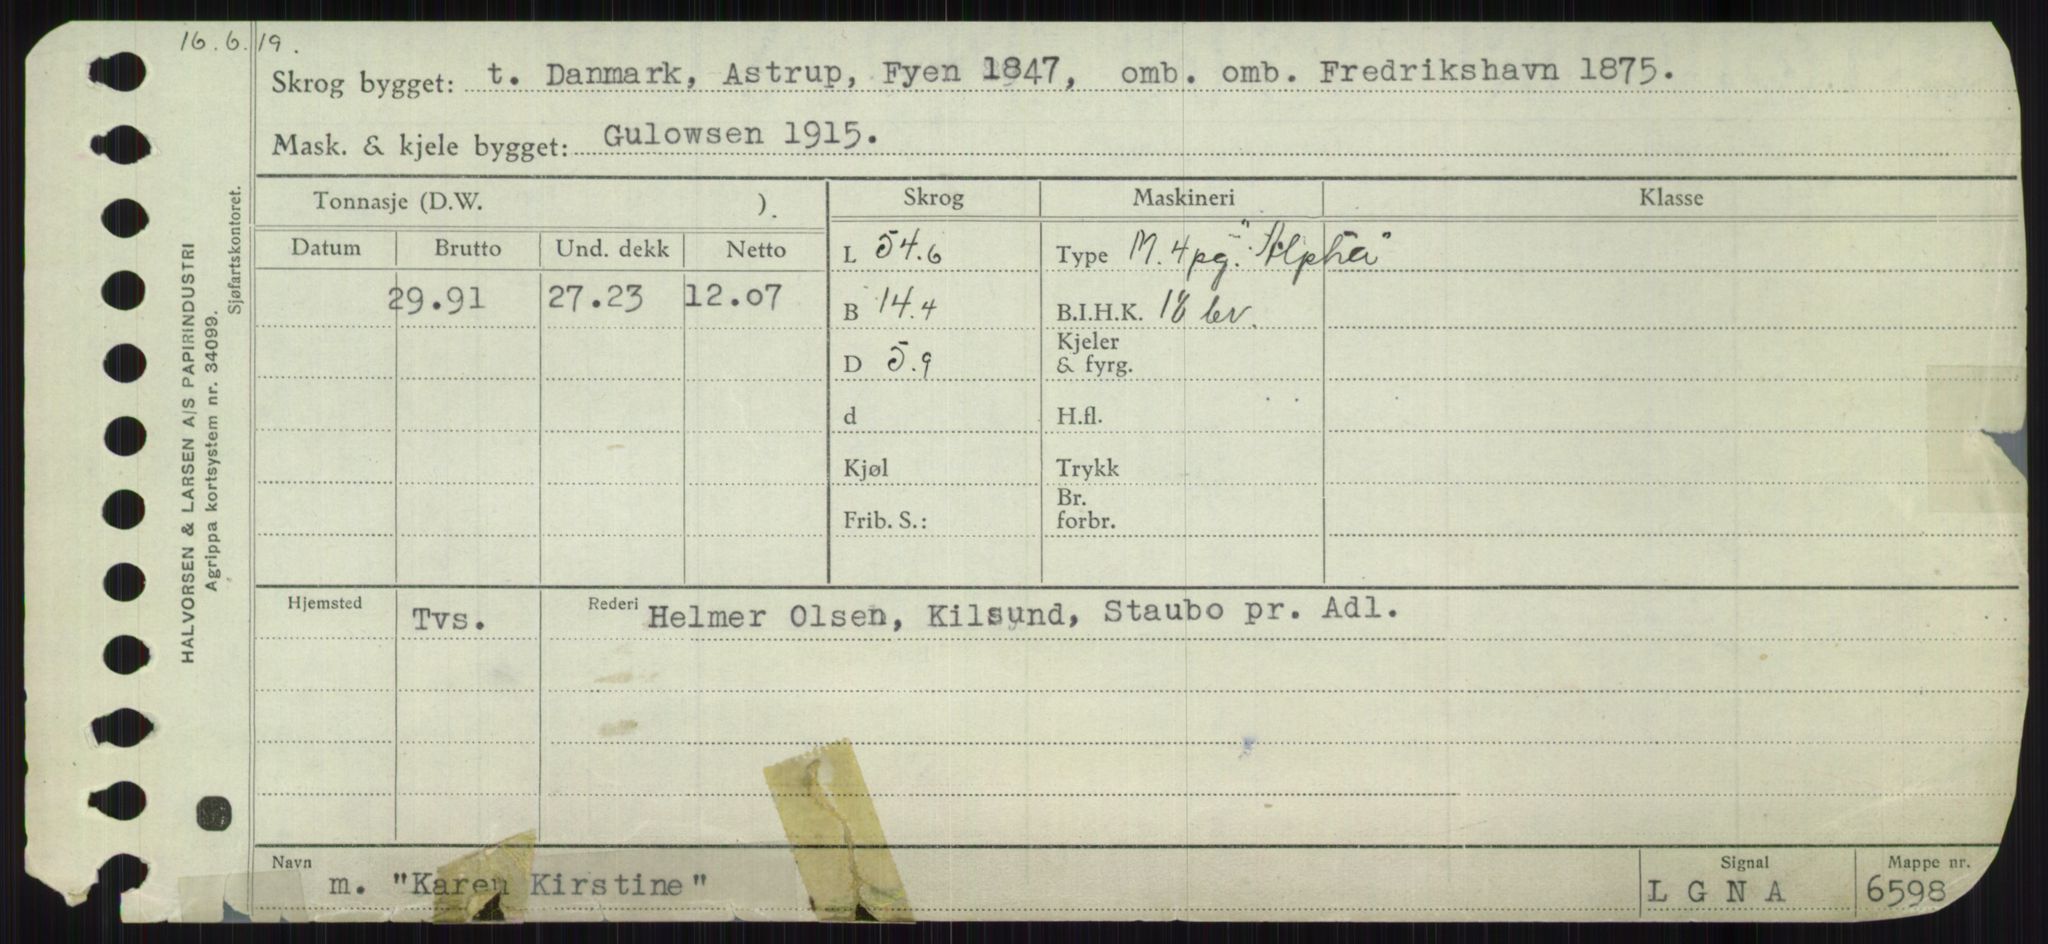 16.6.19.
Skrog bygget: t. Danmark, Astrup, Fyen 1847, omb. omb. Fredrikshavn 1875.
Mask. & kjele bygget: Gulowsen 1915.
Tonnasje (D.W. ). Skrog Maskineri Klasse
Datum Brutto Und. dekk Netto
29.91 27.23 12.07
L 54.6
B 14.4
D 5.9
d
Kjøl
Frib. S.:
Type M. 4pg. "Alpha"
B.I.H.K. 18 bv.
Kjeler
& fyrg.
H.fl.
Trykk
Br.
forbr.
Hjemsted Tvs. Rederi Helmer Olsen, Kilsund, Staubo pr. Adl.
Navn m. "Karen Kirstine"
Signal LGNA
Mappe nr. 6598
HALVORSEN & LARSEN A/S PAPIRINDUSTRI
Agrippa kortsystem nr. 34099.
Sjøfartskontoret.